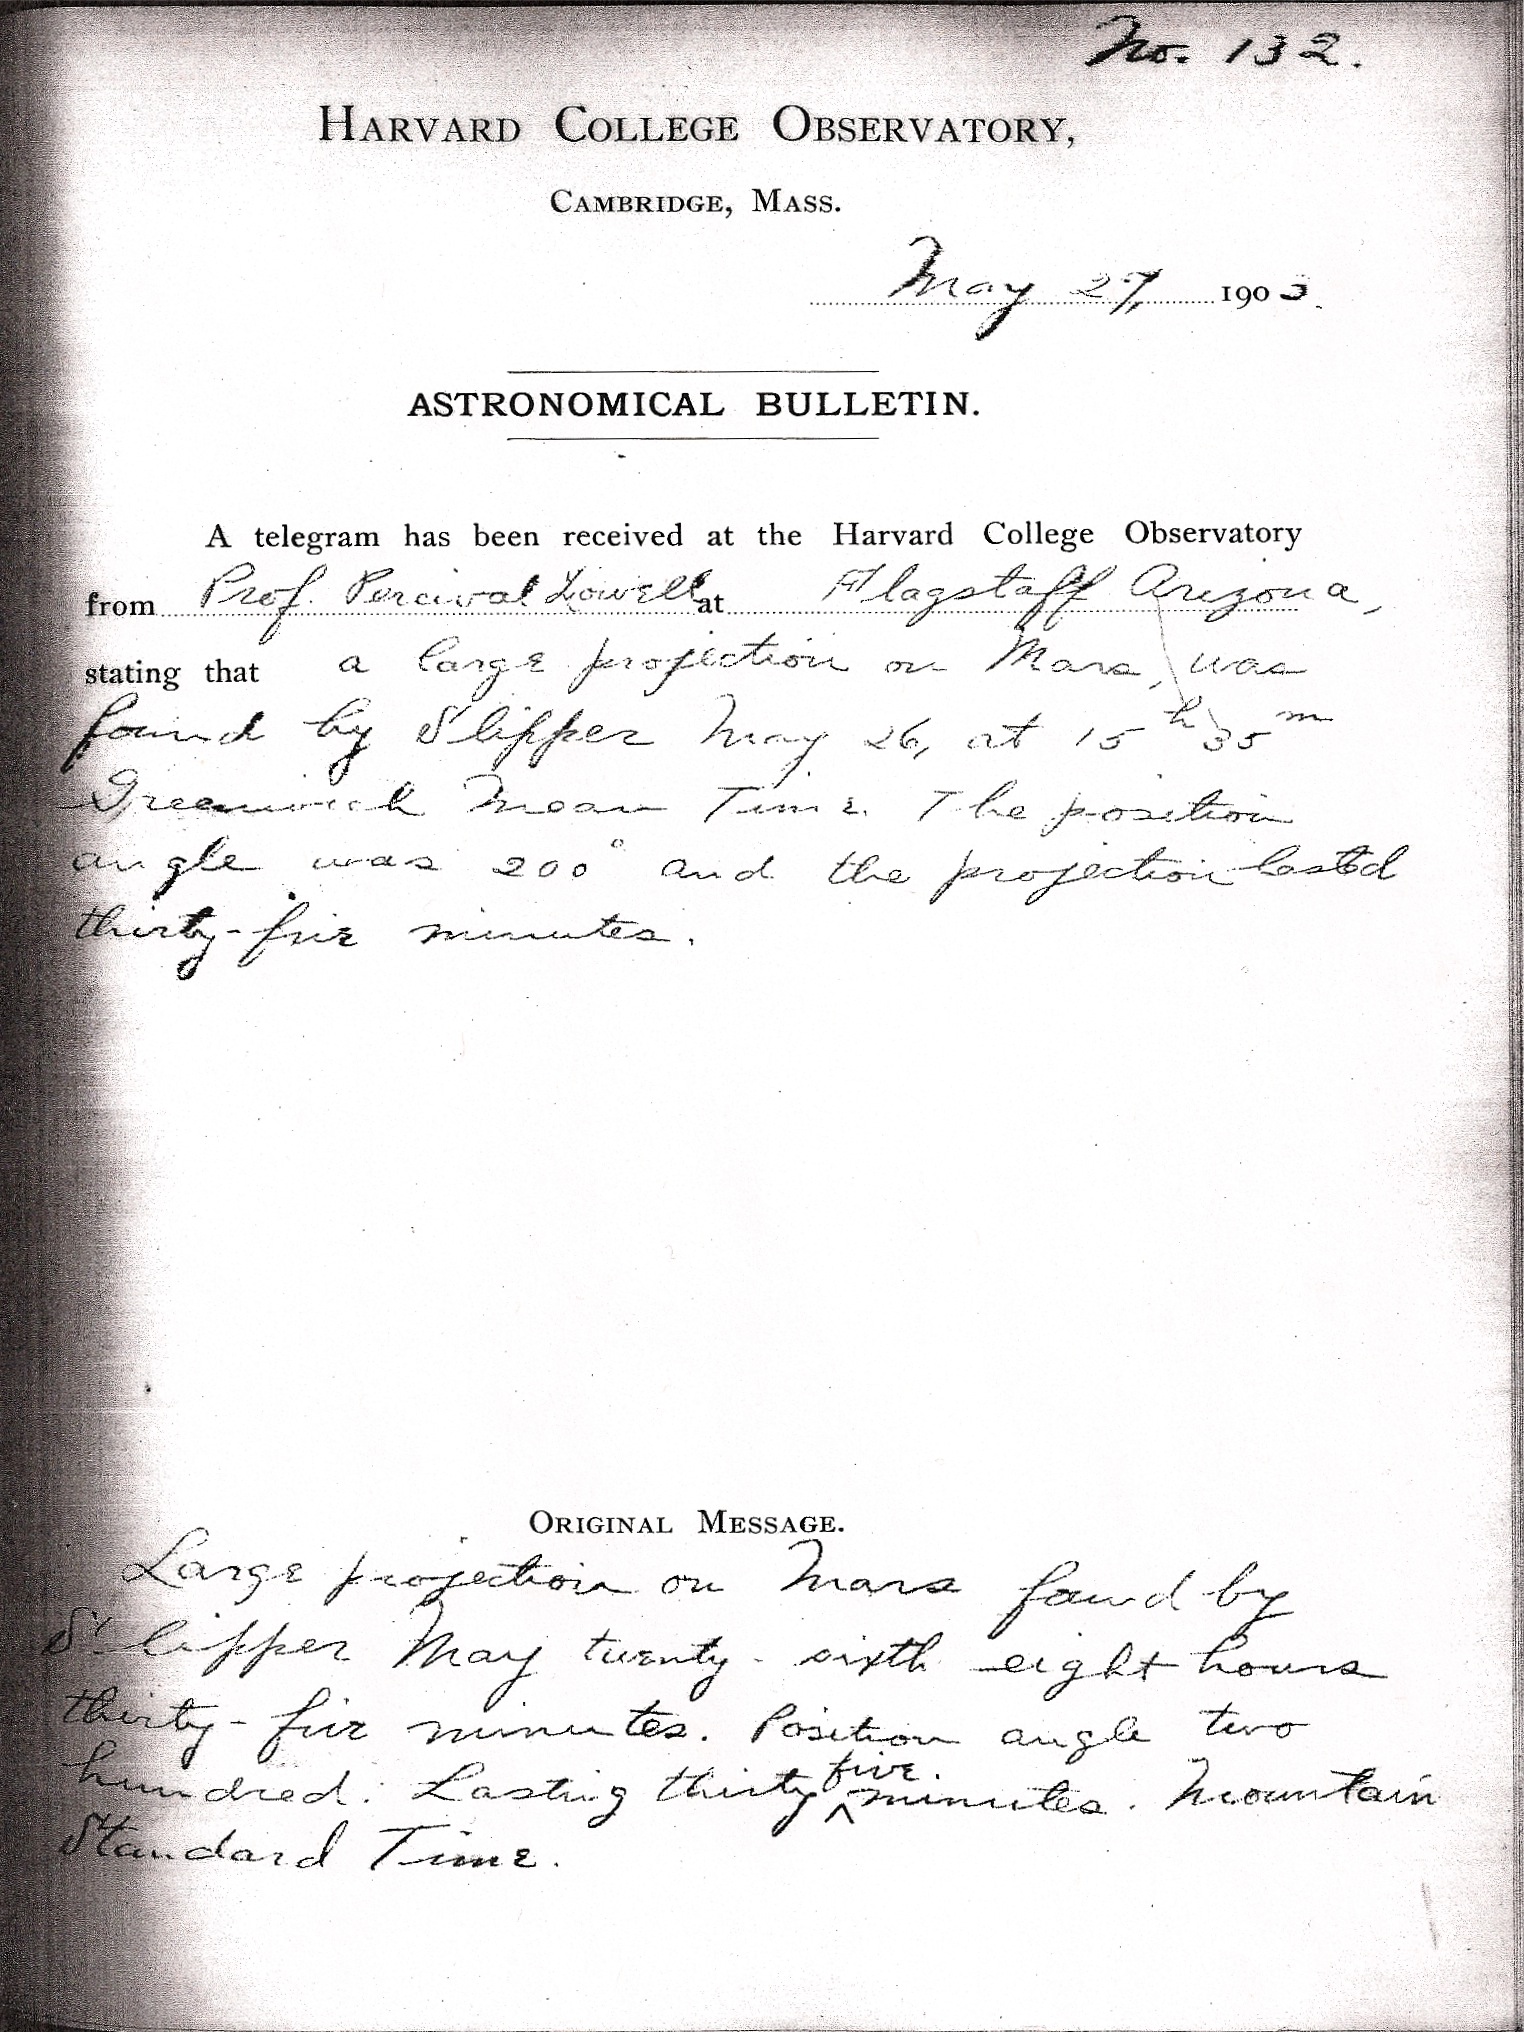 No. 132.
HARVARD COLLEGE OBSERVATORY,
CAMBRIDGE, MASS.
May 27, 1903.
ASTRONOMICAL BULLETIN.
A telegram has been received at the Harvard College Observatory
from Prof. Percival Lowell at Flagstaff Arizona,
stating that a large projection on Mars, was
found by Slipper May 26, at 15h 35m
Greenwich Mean Time. The position
angle was 200° and the projection lasted
thirty-five minutes.
ORIGINAL MESSAGE.
Large projection on Mars found by
Slipper May twenty-sixth eight hours
thirty-five minutes. Position angle two
hundred. Lasting thirty five minutes. Mountain
Standard Time.